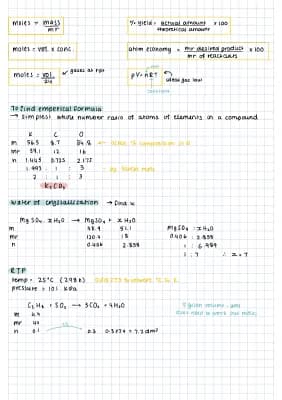 moles = mass / mr
% yield = actual amount / theoretical amount x 100
moles = vol. x conc.
atom economy = mr desired product / mr of reactants x 100
moles = vol. / 24
gases at rtp
pV = nRT
ideal gas law
constant
To find emperical formula
→ simplest whole number ratio of atoms of elements in a compound
K C O
m 56.5 8.7 34.8
mr 39.1 12 16
n 1.445 0.725 2.175
1.993 : 1 : 3
2 : 1 : 3
K₂CO₃
water of crystallisation → find x
MgSO₄ . xH₂O → MgSO₄ + xH₂O
m 48.9 51.1
mr 120.4 18
n 0.406 2.839
MgSO₄ : xH₂O
0.406 : 2.839
1 : 6.989
1 : 7 ∴ x = 7
RTP
temp = 25°C (298k)
pressure = 101 kPa
C₃H₈ + 5O₂ → 3CO₂ + 4H₂O
m 4.4
mr 44
n 0.1 0.3